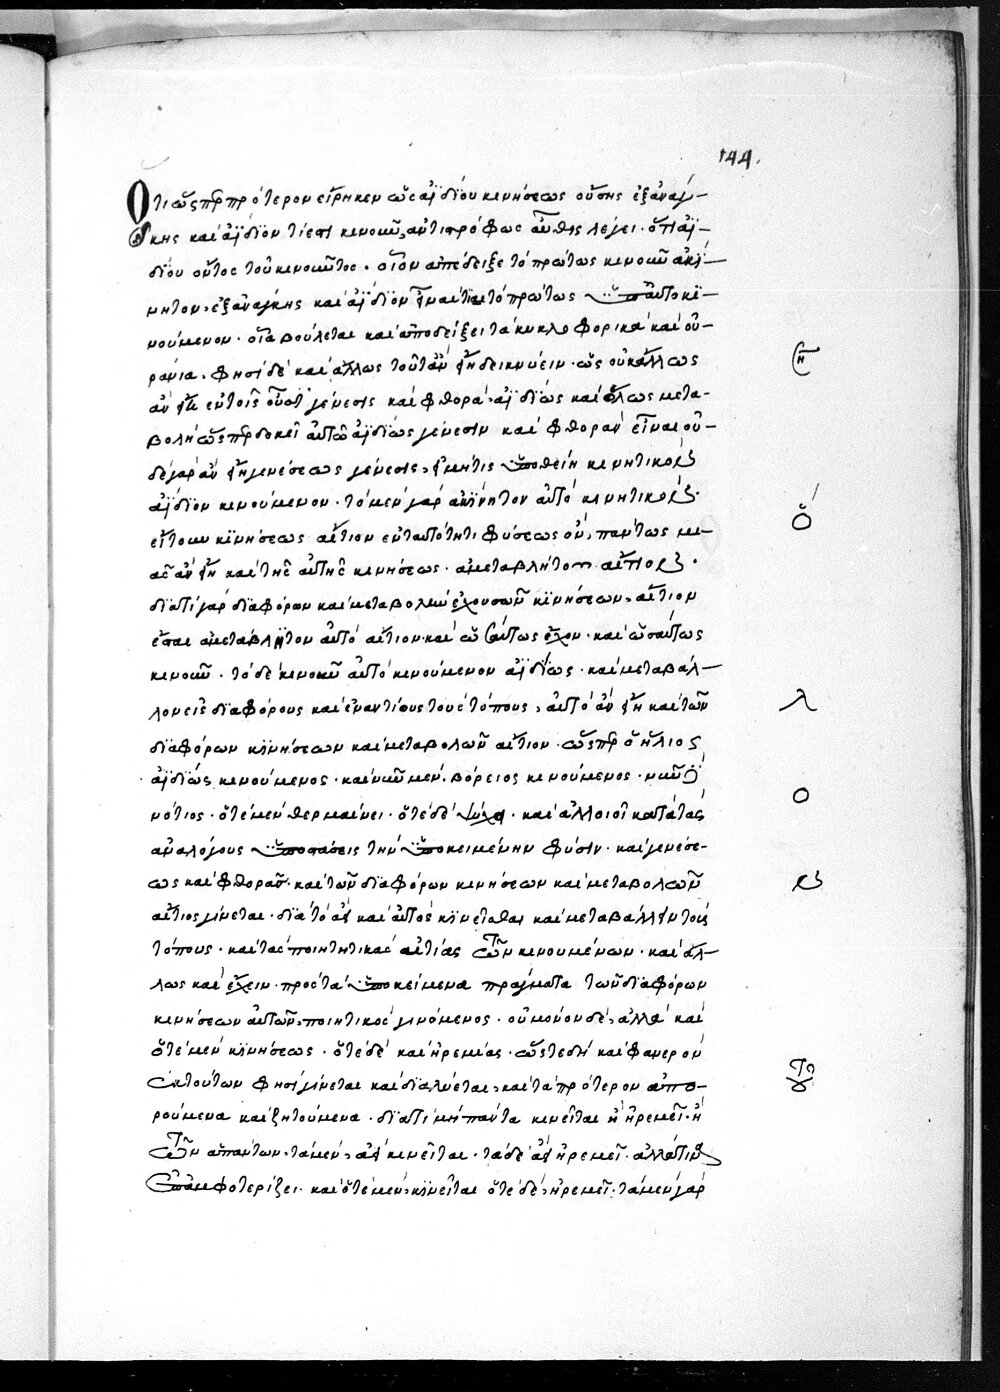 144.
Ὅτι ὥσπερ πρότερον εἴρηκεν ὡς ἀϊδίου κινήσεως οὔσης ἐξ ἀνάγ–
κης καὶ ἀΐδιόν τί ἐστι κινοῦν, ἀντιστρόφως αὖθις λέγει· ὅτι ἀϊ–
δίου ὄντος τοῦ κινοῦντος· οἷον ἀπέδειξε τὸ πρώτως κινοῦν ἀκί–
νητον, ἐξ ἀνάγκης καὶ ἀΐδιον εἶναι τὸ πρώτως ὑπ' αὐτοῦ κι–
νούμενον· οἷα βούλεται καὶ ἀποδείξει τὰ κυκλοφορικὰ καὶ οὐ–
ράνια· φησὶ δὲ καὶ ἄλλως τοῦτ' ἂν εἴη δεικνύειν· ὡς οὐκ ἄλλως
ἂν εἴη ἐν τοῖς οὖσι γένεσις καὶ φθορὰ ἀϊδίως καὶ ὅλως μετα–
βολὴ ὥσπερ δοκεῖ αὐτῷ ἀϊδίως γένεσιν καὶ φθορὰν εἶναι οὐ–
δὲ γὰρ ἂν εἴη γενέσεως γένεσις, εἰ μή τις ὑποθείη κινητικὸν
ἀΐδιον κινούμενον· τὸ μὲν γὰρ ἀκίνητον αὐτὸ κινητικὸν
εἴτουν κινήσεως αἴτιον ἐν ταυτότητι φύσεως ὂν, πάντως μι–
ᾶς ἂν εἴη καὶ τῆς αὐτῆς κινήσεως· ἀμετάβλητον αἴτιον·
διατί γὰρ διαφόρων καὶ μεταβολὴν ἐχουσῶν κινήσεων, αἴτιον
ἔσται ἀμετάβλητον αὐτὸ αἴτιον· καὶ ὡσαύτως ἔχον· καὶ ὡσαύτως
κινοῦν· τὸ δὲ κινοῦν αὐτὸ κινούμενον ἀϊδίως· καὶ μεταβάλ–
λον εἰς διαφόρους καὶ ἐναντίους τοὺς τόπους, αὐτὸ ἂν εἴη καὶ τῶν
διαφόρων κινήσεων καὶ μεταβολῶν αἴτιον· ὥσπερ ὁ ἥλιος
ἀϊδίως κινούμενος· καὶ νῦν μὲν, βόρειος κινούμενος· νῦν δὲ
νότιος· ὁτὲ μὲν θερμαίνει· ὁτὲ δὲ ψύχει· καὶ ἀλλοιοῖ κατὰ τὰς
ἀναλόγους ὑποστάσεις τὴν ὑποκειμένην φύσιν· καὶ γενέσε–
ως καὶ φθορᾶς· καὶ τῶν διαφόρων κινήσεων καὶ μεταβολῶν
αἴτιος γίνεται· διὰ τὸ καὶ αὐτὸς κινεῖσθαι καὶ μεταβάλλειν τοὺς
τόπους· καὶ τὰς ποιητικὰς αἰτίας τῶν κινουμένων· καὶ ἄλ–
λως καὶ ἔχειν· πρὸς τὰ ὑποκείμενα πράγματα τῶν διαφόρων
κινήσεων αὐτῶν, ποιητικὸς γινόμενος· οὐ μόνον δὲ, ἀλλὰ καὶ
ὁτὲ μὲν κινήσεως· ὁτὲ δὲ καὶ ἠρεμίας· ὥστε δὴ καὶ φανερὸν
ἐκ τούτων φησὶ γίνεται καὶ διαλύεται, καὶ τὰ πρότερον ἀπο–
ρούμενα καὶ ζητούμενα· διατί μὴ πάντα κινεῖται ἢ ἠρεμεῖ· ἢ
τῶν ἁπάντων, τὰ μὲν, ἀεὶ κινεῖται· τὰ δὲ ἀεὶ ἠρεμεῖ· ἀλλά τινα
ἐπαμφοτερίζει· καὶ ὁτὲ μὲν, κινεῖται ὁτὲ δὲ, ἠρεμεῖ· τὰ μὲν γὰρ